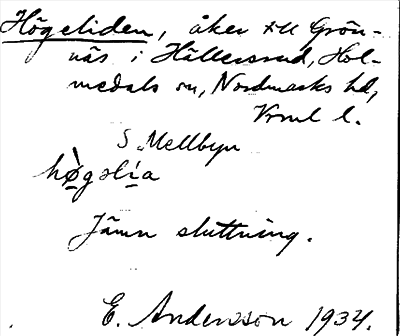 Högeliden, åker till Grön-
näs i Hällersrud, Hol-
medals sn, Nordmarks hd,
Vrml l.
S. Mellbyn
hø̀gəlìa
Jämn sluttning.
E. Andersson 1934.